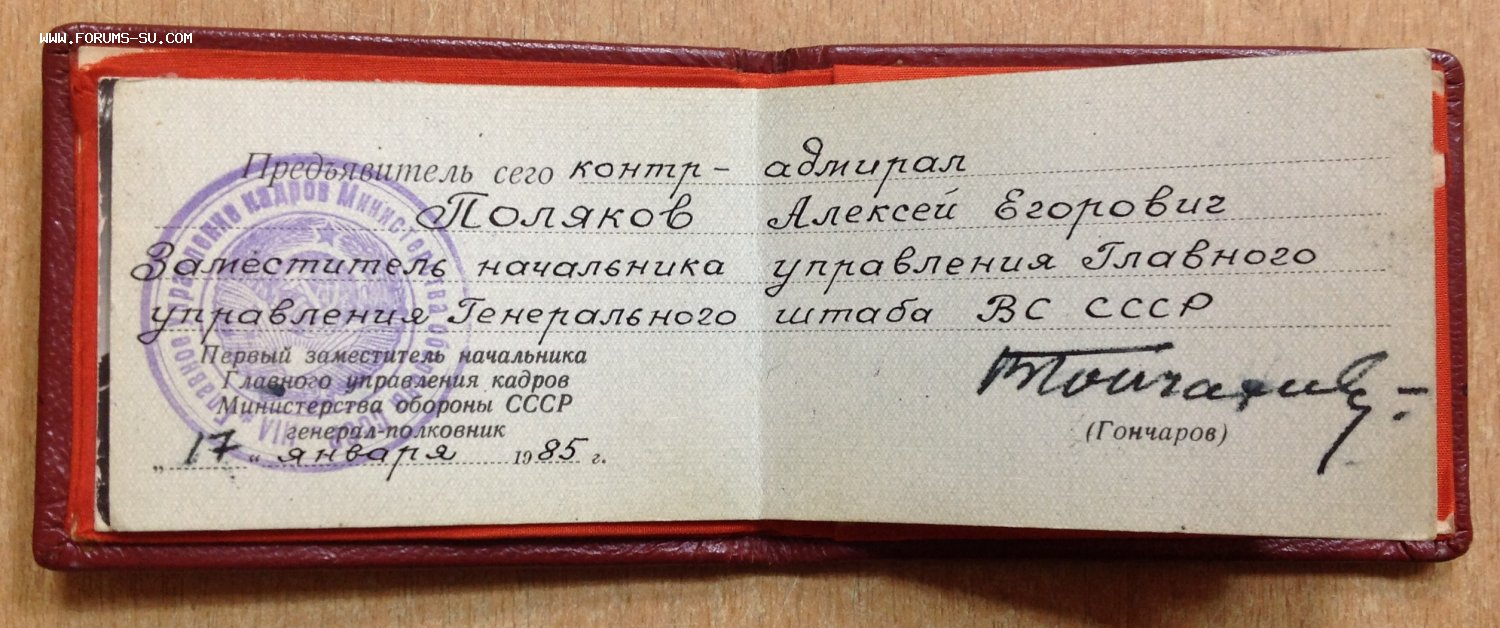 WWW.FORUMS-SU.COM
Предъявитель сего контр- адмирал
Поляков Алексей Егорович
Заместитель начальника управления Главного
управления Генерального штаба ВС СССР
Первый заместитель начальника
Главного управления кадров
Министерства обороны СССР
генерал-полковник
(Гончаров)
„17“ января 1985 г.
Главное управление кадров Министерства обороны